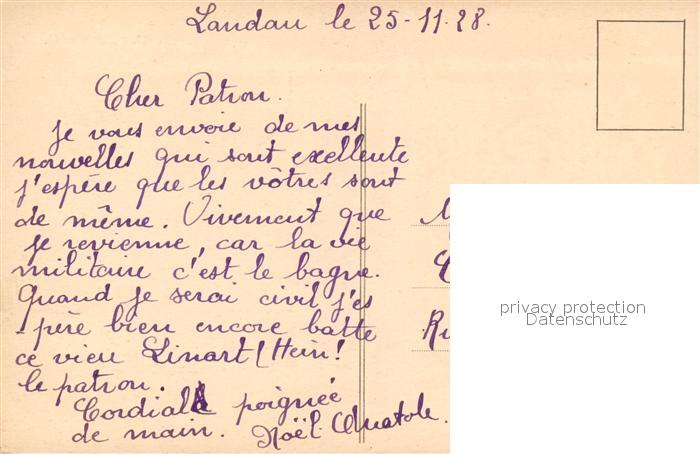 Landau le 25-11-28.
Cher Patron.
je vous envoie de mes
nouvelles qui sont exellente
j'espère que les vôtres sont
de même. Vivement que
je revienne, car la vie
militaire c'est le bagne.
Quand je serai civil j'es
-père bien encore battre
ce vieu Linart (Hein!
le patron.
Cordiale poignée
de main. Noël Anatole.
Ru
privacy protection
Datenschutz